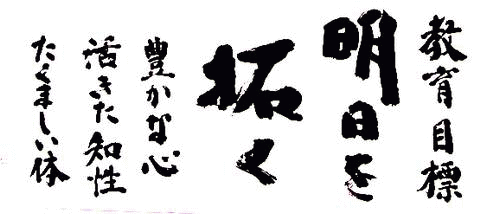 教育目標
明日を
拓く
豊かな心
活きた知性
たくましい体